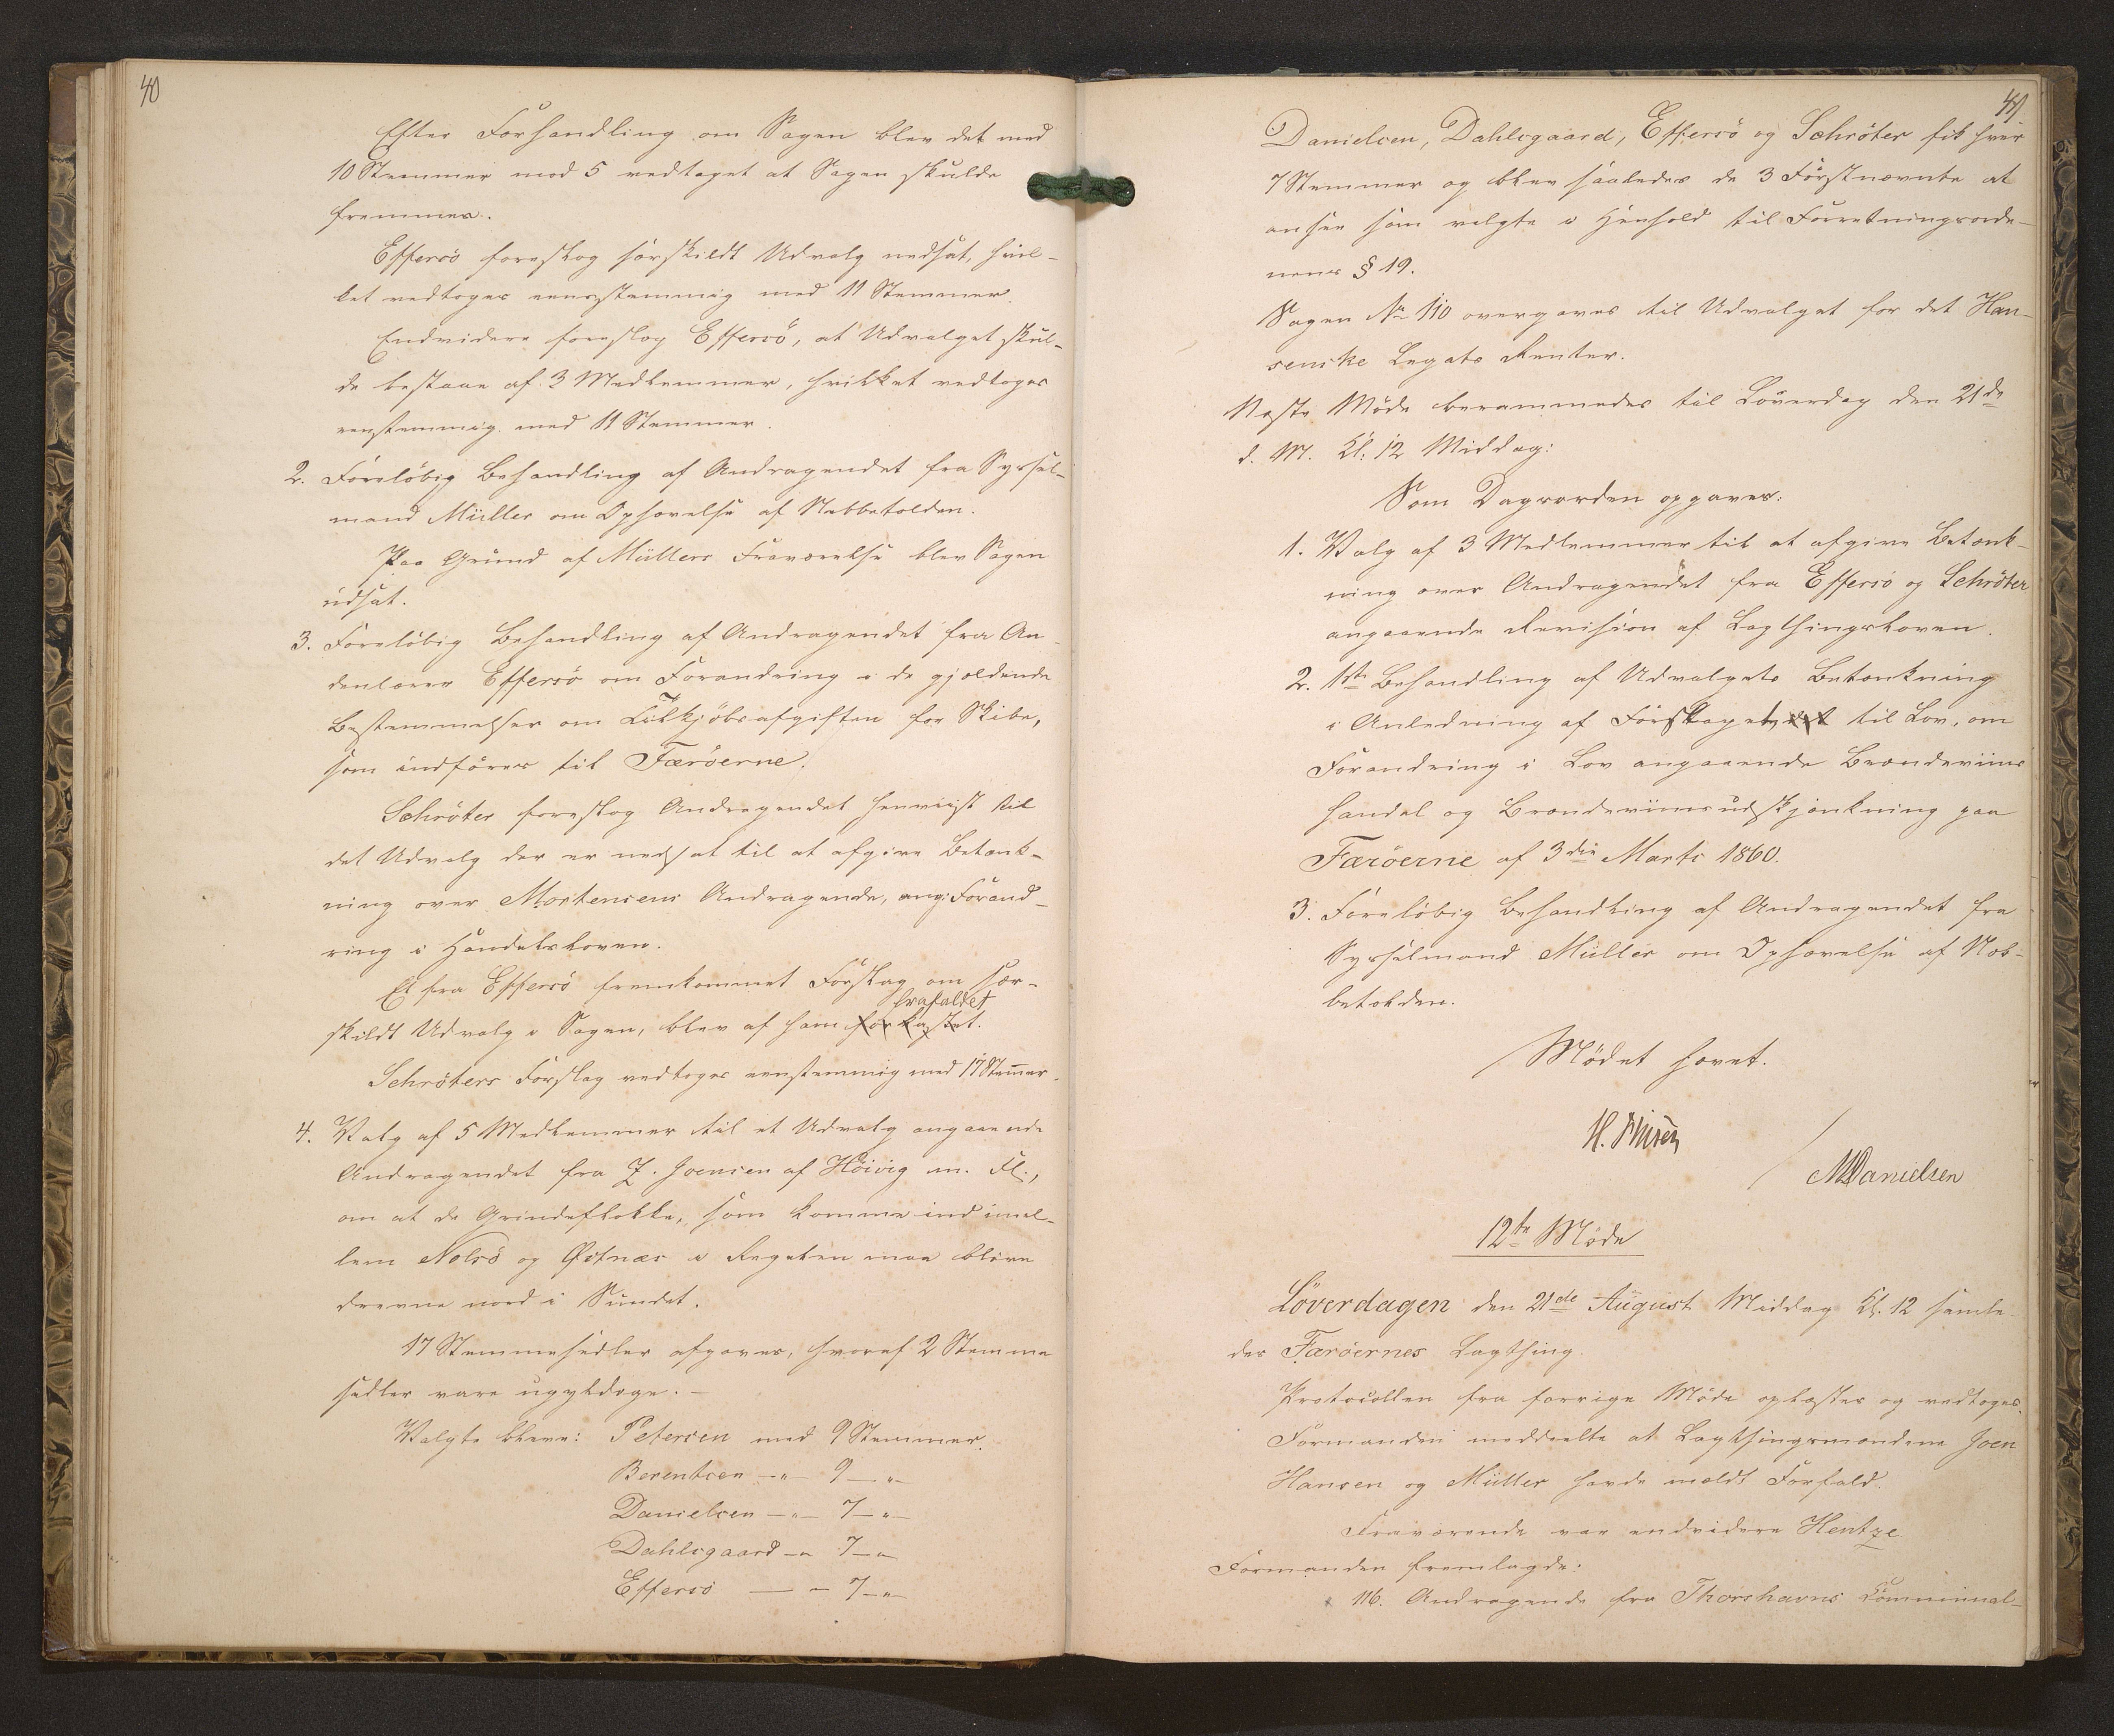 40
Efter Forhandling om Sagen blev det med
10 Stemmer mod 5 vedtaget at Sagen skulde
fremmes.
Effersö foreslog särskildt Udvalg nedsat, hvil-
ket vedtoges eensstemmig med 11 Stemmer.
Endvidere foreslog Effersö, at Udvalget skul-
de bestaae af 3 Medlemmer, hvilket vedtoges
eenstemmig med 11 Stemmer.
2. Foreløbig Behandling af Andragendet fra Syssel-
mand Müller om Ophævelse af Nebbetolden.
Paa Grund af Müllers Fraværelse blev Sagen
udsat.
3. Foreløbig Behandling af Andragendet fra An-
denlærer Effersö om Forandring i de gjældende
Bestemmelser om Tilkjöbsafgiften for Skibe,
som indföres til Færöerne.
Schröter foreslog Andragendet henviist til
det Udvalg der er nedsat til at afgive Betænk-
ning over Mortensens Andragende, ang. Forand-
ring i Handelsloven.
Et fra Effersö fremkommet Forslag om sær-
frafaldet
skildt Udvalg i Sagen, blev af ham forkastet.
Schröters Forslag vedtoges eenstemmig med 17 Stemmer.
4. Valg af 5 Medlemmer til et Udvalg angaaende
Andragendet fra J. Joensen af Höivig m. Fl.,
om at de Grindeflokke, som komme ind imel-
lem Nolsö og Østnæs i Regelen maa blive
drevne nord i Sundet.
17 Stemmesedler afgaves, hvoraf 2 Stemme
sedler vare ugyldige. -
Valgte bleve: Petersen med 9 Stemmer.
Berentsen -"- 9 -"-
Danielsen -"- 7 -"-
Dahlsgaard -" 7 -"
Effersö - " 7 -"-
41
Danielsen, Dahlsgaard, Effersö og Schröter fik hver
7 Stemmer og blev saaledes de 3 Förstnævnte at
ansee som valgte i Henhold til Forretningsorde-
nens § 19.
Sagen No 110 overgaves til Udvalget for det Han-
senske Legats Renter.
Næste Möde berammedes til Löverdag den 21de
d. M. Kl. 12 Middag:
Som Dagsorden opgaves:
1. Valg af 3 Medlemmer til at afgive Betænk-
ning over Andragendet fra Effersö og Schröter
angaaende Revision af Lagthingsloven.
2. 1ste Behandling af Udvalgets Betænkning
i Anledning af Forslaget til Lov, om
Forandring i Lov angaaende Brændeviins
handel og Brændeviinsudskjænkning paa
Færöerne af 3die Marts 1860.
3. Foreløbig Behandling af Andragendet fra
Sysselmand Müller om Ophævelse af Neb-
betolden.
Mödet hævet.
MDanielsen
12te Möde
Löverdagen den 21de August Middag Kl. 12 samle-
des Færöernes Lagthing.
Protocollen fra forrige Möde oplæstes og vedtoges.
Formanden meddeelte at Lagthingsmændene Joen
Hansen og Müller havde meldt Forfald.
Fraværende var endvidere Hentze
Formanden fremlagde:
116. Andragende fra Thorshavns Communal-